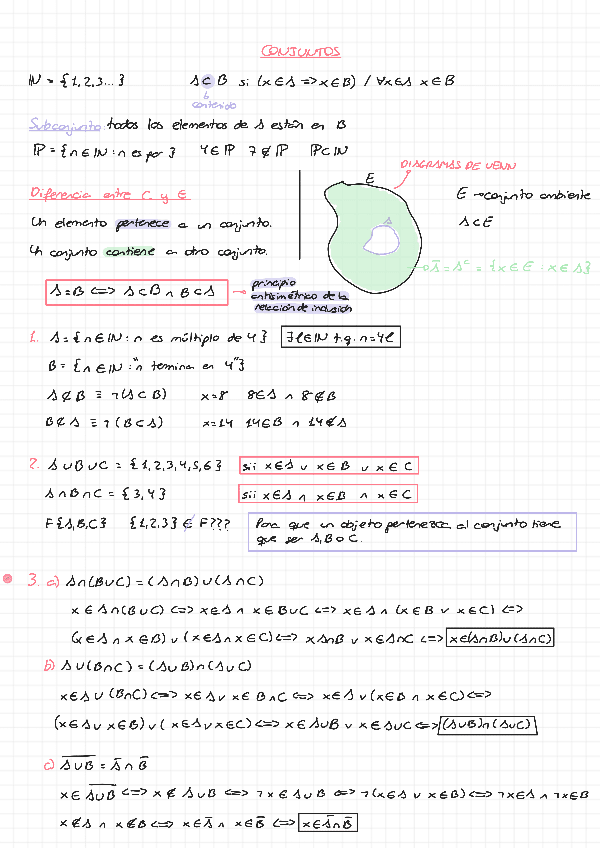 CONJUNTOS
IN = {1,2,3...} A ⊂ B si (x∈A => x∈B) / ∀x∈A x∈B
contenido
Subconjunto todos los elementos de A están en B
IP = {n∈IN : n es par} 4∈IP 7∉IP IP⊂IN
DIAGRAMAS DE VENN
Diferencia entre C y E
E
E → conjunto ambiente
Un elemento pertenece a un conjunto.
A
A⊂E
Un conjunto contiene a otro conjunto.
Ā = Aᶜ = {x∈E : x∈A}
A=B <=> A⊂B ∧ B⊂A → principio
antisimétrico de la
relación de inclusión
1. A = {n∈IN : n es múltiplo de 4} ∃l∈IN t.q. n=4l
B = {n∈IN : "n termina en 4"}
A⊄B ≡ ¬(A⊂B) x=8 8∈A ∧ 8∉B
B⊄A ≡ ¬(B⊂A) x=14 14∈B ∧ 14∉A
2. A∪B∪C = {1,2,3,4,5,6} sii x∈A ∨ x∈B ∨ x∈C
A∩B∩C = {3,4} sii x∈A ∧ x∈B ∧ x∈C
F{A,B,C} {1,2,3} ∉ F??? Para que un objeto pertenezca al conjunto tiene
que ser A, B o C.
3. a) A∩(B∪C) = (A∩B)∪(A∩C)
x∈A∩(B∪C) <=> x∈A ∧ x∈B∪C <=> x∈A ∧ (x∈B ∨ x∈C) <=>
(x∈A ∧ x∈B) ∨ (x∈A∧x∈C) <=> x A∩B ∨ x∈A∩C <=> x∈(A∩B)∪(A∩C)
b) A∪(B∩C) = (A∪B)∩(A∪C)
x∈A∪(B∩C) <=> x∈A ∨ x∈B∩C <=> x∈A ∨ (x∈B ∧ x∈C) <=>
(x∈A ∨ x∈B) ∨ (x∈A∨x∈C) <=> x∈A∪B ∨ x∈A∪C <=> (A∪B)∩(A∪C)
c) A̅∪̅B̅ = Ā∩B̄
x∈A̅∪̅B̅ <=> x∉A∪B <=> ¬x∈A∪B <=> ¬(x∈A ∨ x∈B) <=> ¬x∈A ∧ ¬x∈B
x∉A ∧ x∉B <=> x∈Ā ∧ x∈B̄ <=> x∈Ā∩B̄